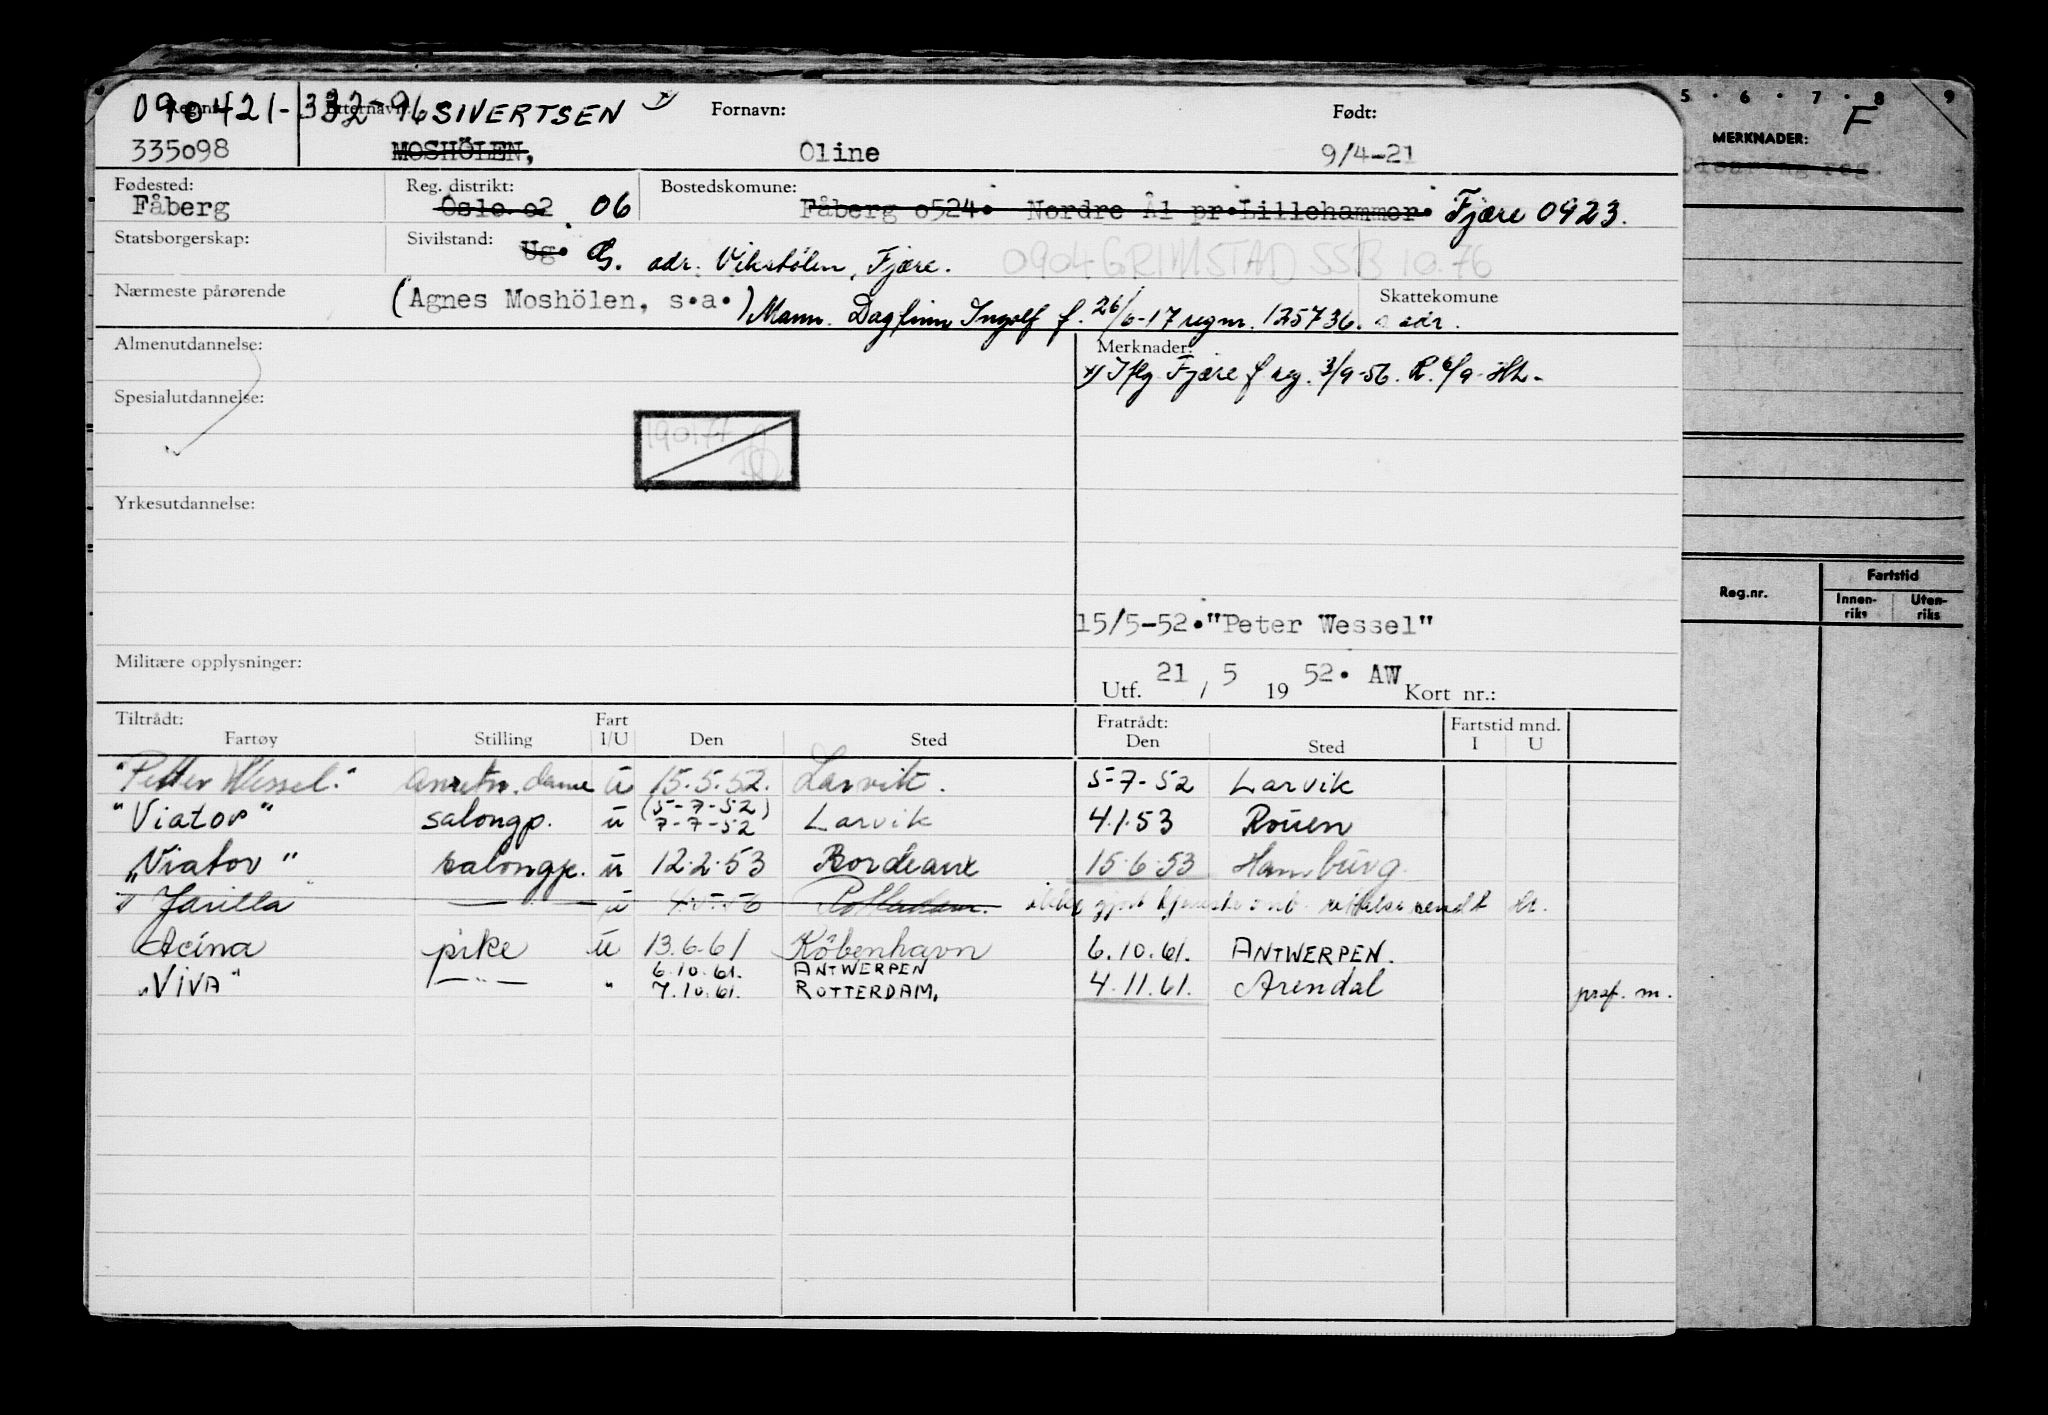 Reg.nr. 090421-33296 Etternavn: SIVERTSEN x) Fornavn: Født:
335098 MOSHÖLEN, Oline 9/4-21
Fødested: Reg. distrikt: Bostedskomune:
Fåberg Oslo o2 06 Fåberg o524. Nordre Ål pr. Lillehammer. Fjære 0923.
Statsborgerskap: Sivilstand: Ug. G. adr. Vikstølen, Fjære. 0904 GRIMSTAD SSB 10.76
Nærmeste pårørende (Agnes Moshölen, s.a.) Mann. Dagfinn Ingolf f. 26/6-17 regnr. 125736. s adr. Skattekomune
Almenutdannelse: Merknader:
x) Iflg. Fjære f reg. 3/9-56. R. 6/9
Spesialutdannelse:
190177
Yrkesutdannelse:
15/5-52. "Peter Wessel"
Militære opplysninger:
Utf. 21 / 5 19 52. AW Kort nr.:
Tiltrådt: Fart Fratrådt: Fartstid mnd.
Fartøy Stilling I/U Den Sted Den Sted I U
"Petter Wessel." anretn.dame u 15.5.52. Larvik. 5-7-52 Larvik
"Viator" salongp. u (5-7-52) 7-7-52 Larvik 4.1.53 Rouen
"Viator" salongp. u 12.2.53 Bordeaux 15.6.53 Hamburg.
" Jarilla — " — u Rotterdam. ikke gjort tjeneste omb. rettelse sendt
Acina pike u 13.6.61 København 6.10.61. ANTWERPEN.
"VIVA" — " — " 6.10.61. ANTWERPEN
7.10.61. ROTTERDAM. 4.11.61. Arendal pras. m.
5 · 6 · 7 · 8 9
MERKNADER: F
Reg.nr. Fartstid
Innen-riks Uten-riks